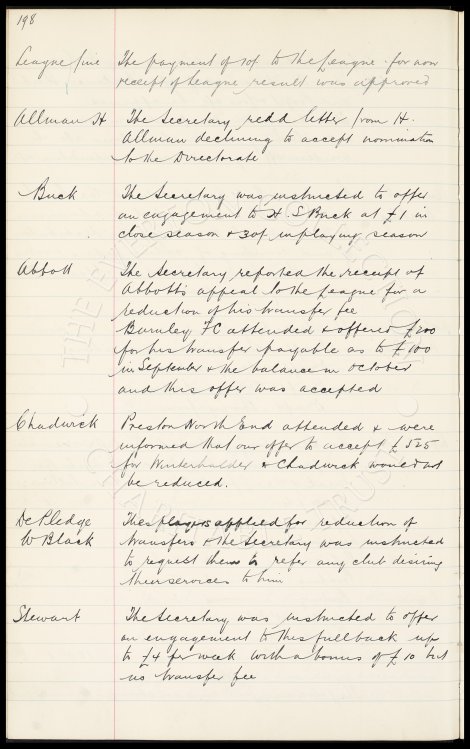 198
League fine The payment of 10/- to the League for non
receipt of League result was approved
Allman H The Secretary read letter from H.
Allman declining to accept nomination
to the Directorate
Buck The Secretary was instructed to offer
an engagement to H. S Buck at £1 in
close season & 30/- in playing season
Abbott The Secretary reported the receipt of
Abbott's appeal to the League for a
reduction of his transfer fee
Burnley FC attended & offered £200
for his transfer payable as to £100
in September & the balance in October
and this offer was accepted
Chadwick Preston North End attended & were
informed that our offer to accept £525
for Winterhalder & Chadwick would not
be reduced.
De Pledge These players applied for reduction of
W Black transfers & the Secretary was instructed
to request them to refer any club desiring
their services to him
Stewart The Secretary was instructed to offer
an engagement to this full back up
to £4 per week with a bonus of £10 but
no transfer fee